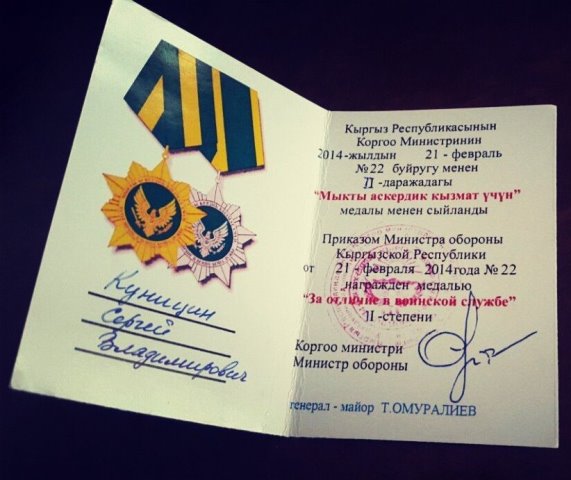 Куницин
Сергей
Владимирович
Кыргыз Республикасынын
Коргоо Министринин
2014-жылдын 21 - февраль
№22 буйругу менен
II -даражадагы
“Мыкты аскердик кызмат үчүн”
медалы менен сыйланды
Приказом Министра обороны
Кыргызской Республики
от 21 - февраля 2014года №22
награжден медалью
“За отличие в воинской службе”
II -степени
Коргоо министри
Министр обороны
генерал - майор Т.ОМУРАЛИЕВ